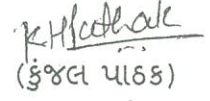 KHPathak
(કુંજલ પાઠક)